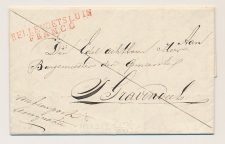 HELLEVOETSLUIS
FRANCO
Aan
Den Edel Achtbaren Heer
Burgemeester der Gemeente
's Gravendeel